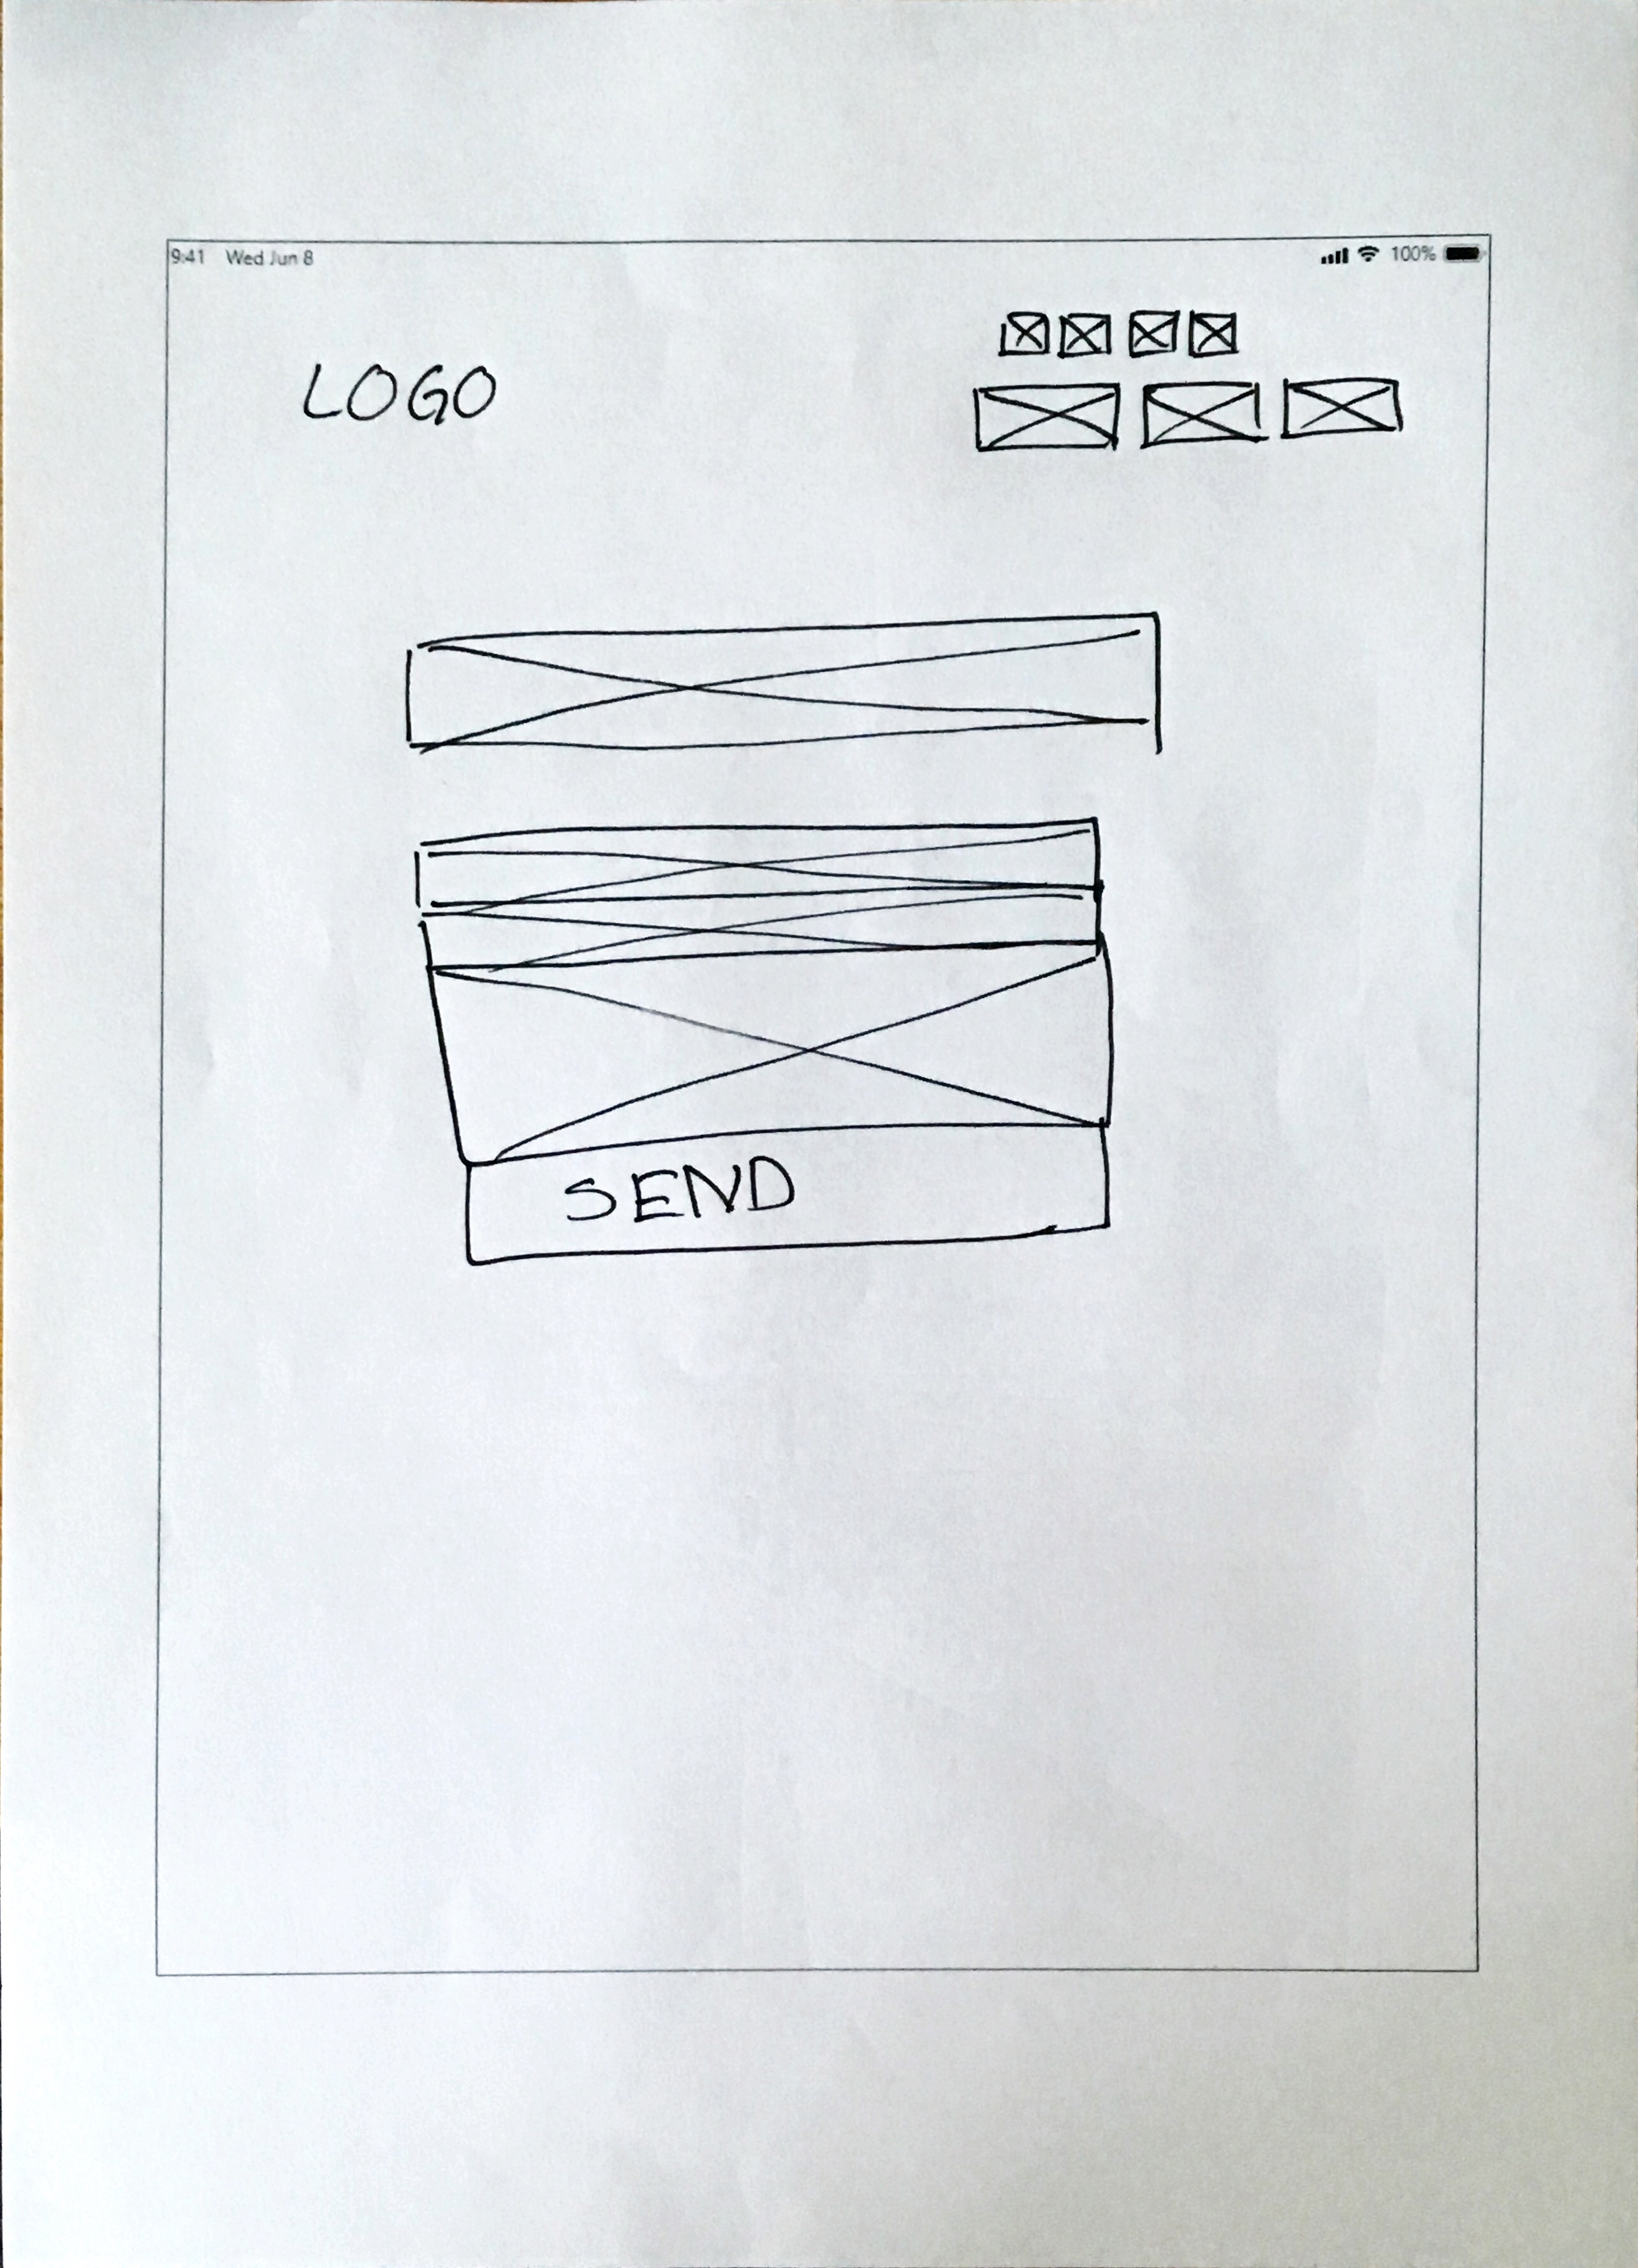 9:41 Wed Jun 8 100%
LOGO
SEND